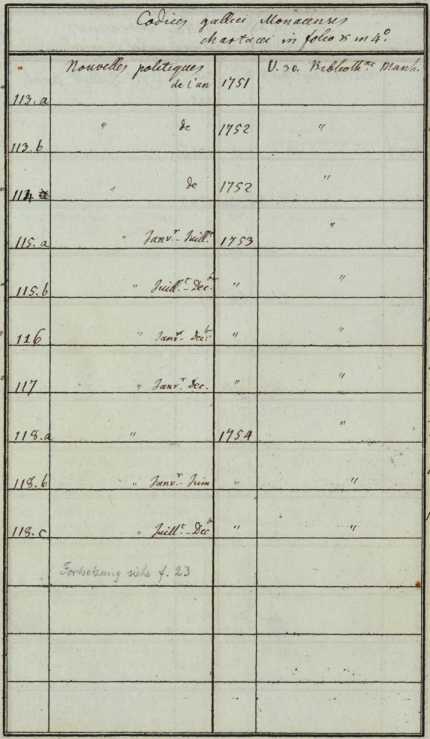 Codices gallici Monacenses
chartacei in folio & in 4º.
Nouvelles politiques
de l'an 1751 V. 30. Biblioth.ae Manh.
113.a
" de 1752 "
113.b
" de 1752 "
114
115.a " Janv.r - Juill.t 1753 "
115.b " Juill.t - Dec.b " "
116 " Janv.r - Dec.b " "
117 " Janv.r Dec. " "
118.a " 1754 "
118.b " Janv.r - Juin " "
118.c " Juill.t - Dec.b " "
Fortsetzung siehe f. 23